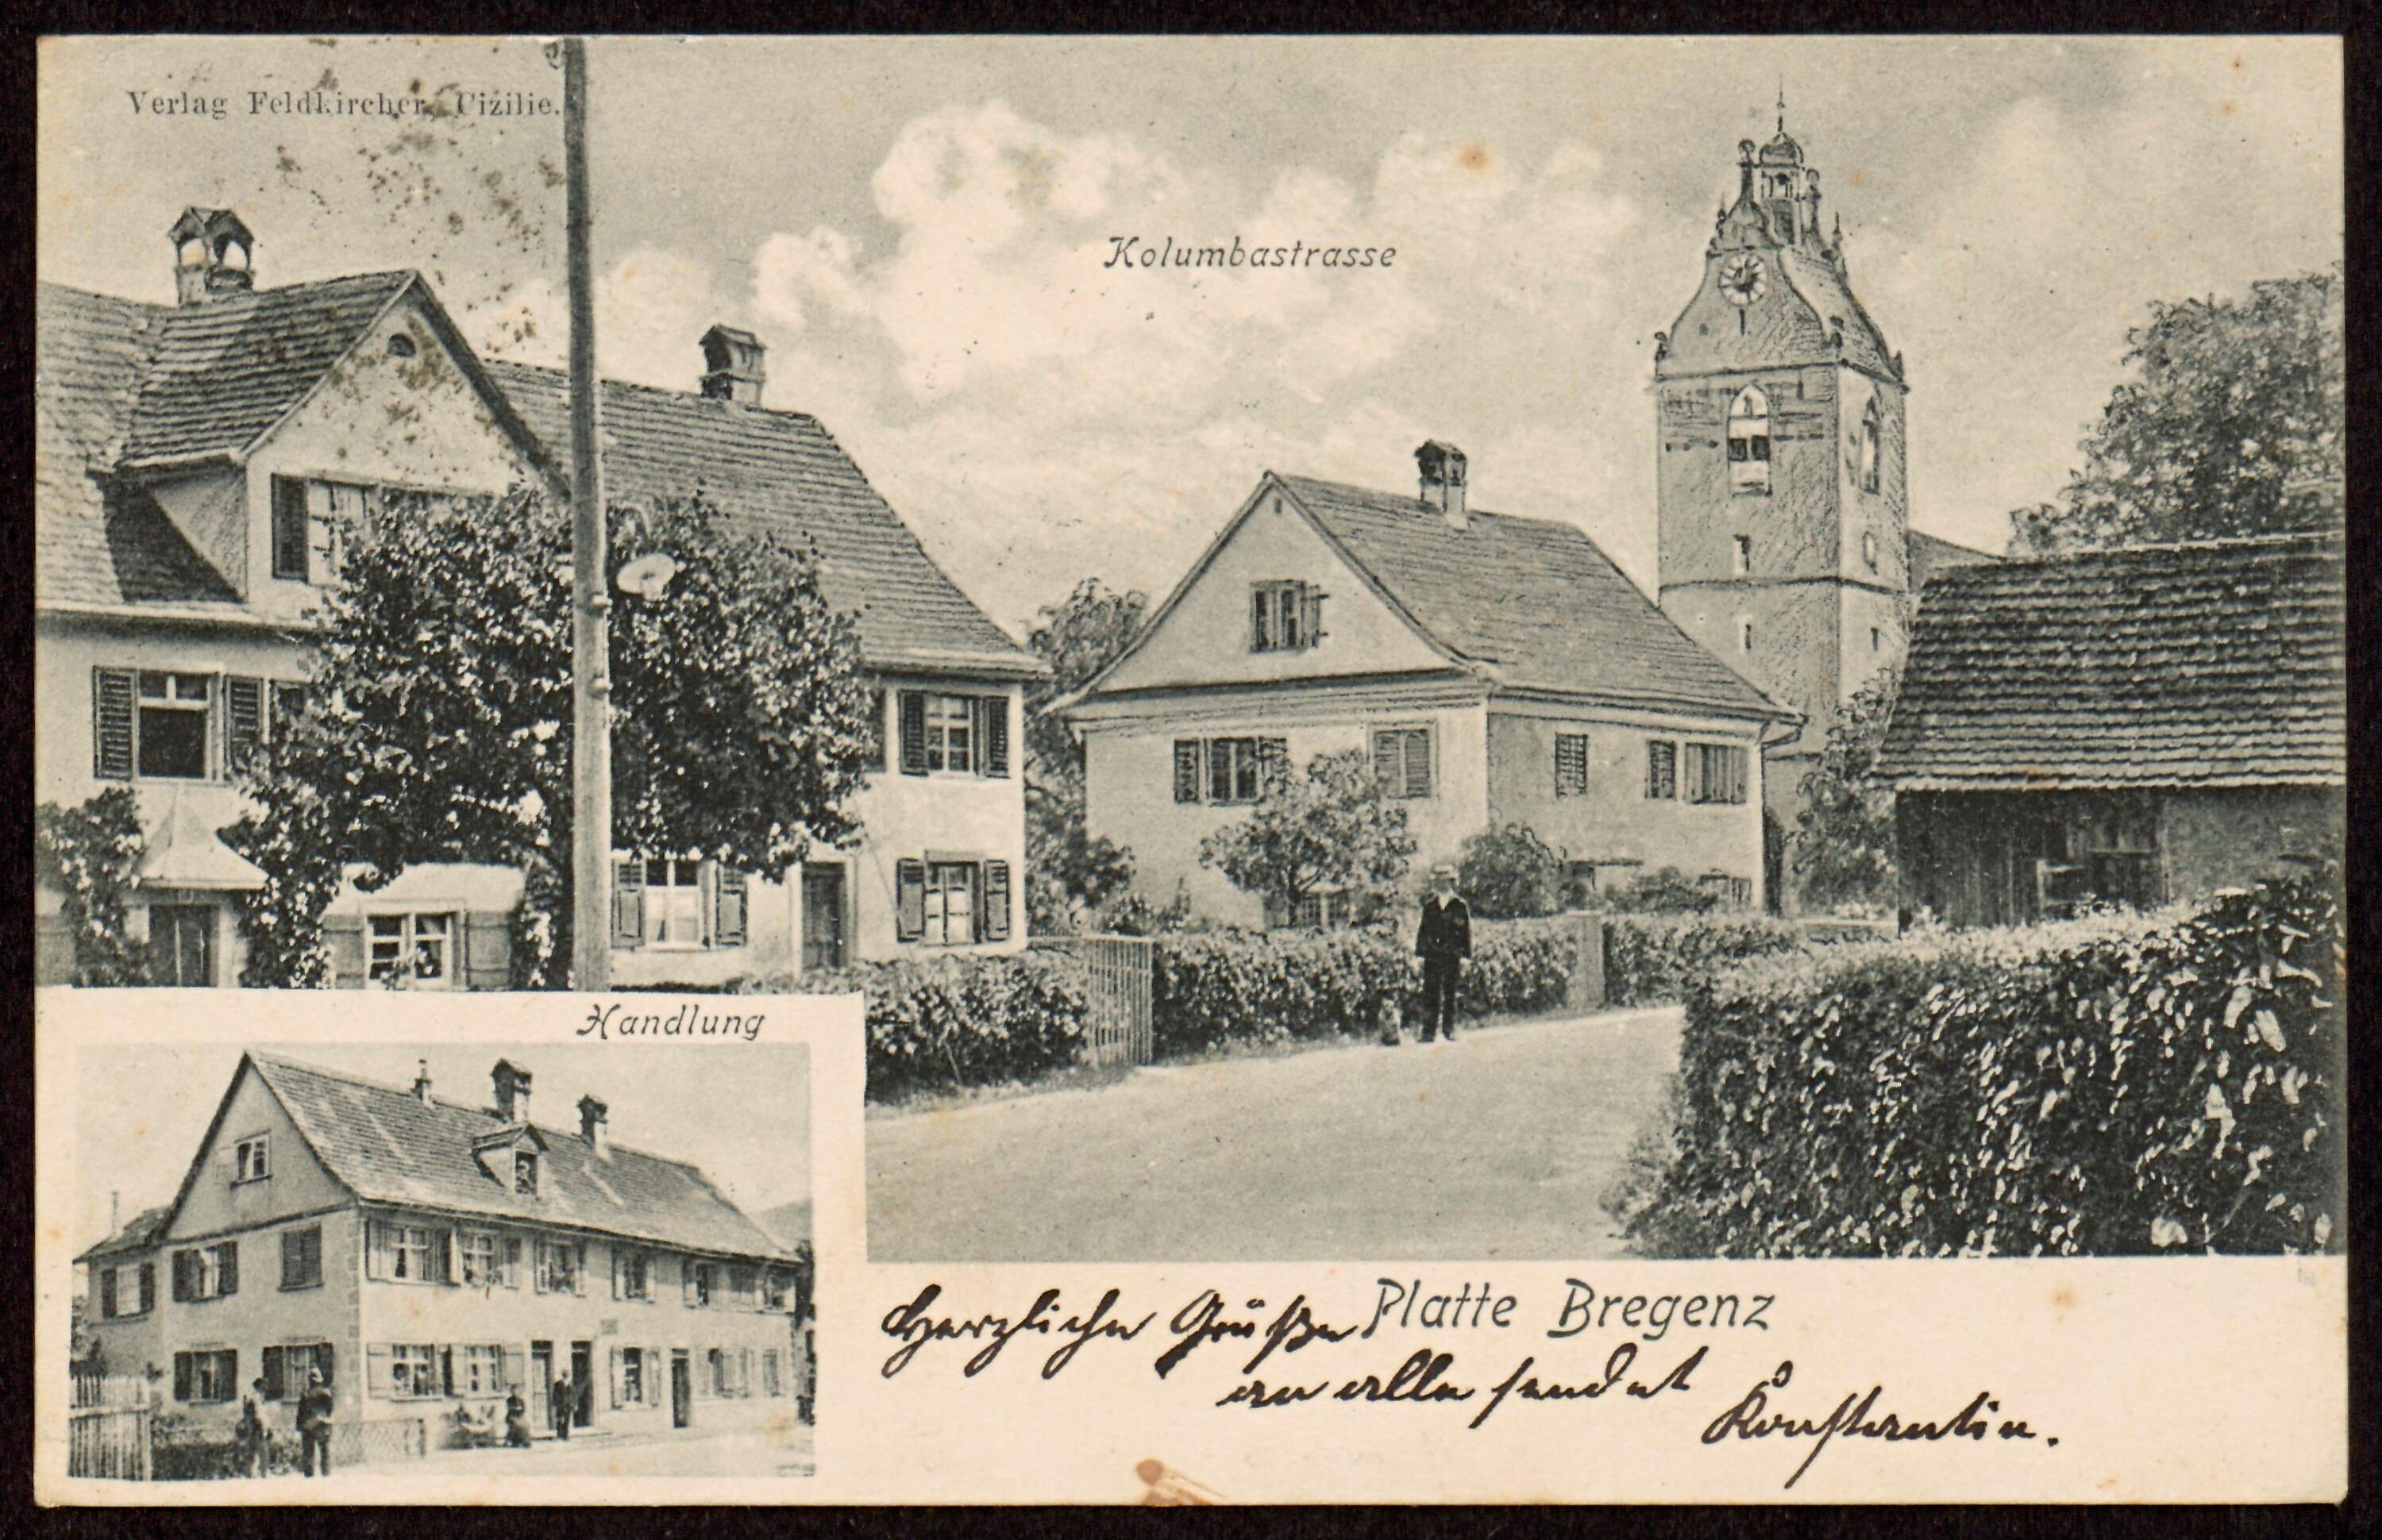 Verlag Feldkircher, Cizilie.
Kolumbastrasse
Handlung
Platte Bregenz
Herzliche Grüße
an alle sendet
Konstantin.